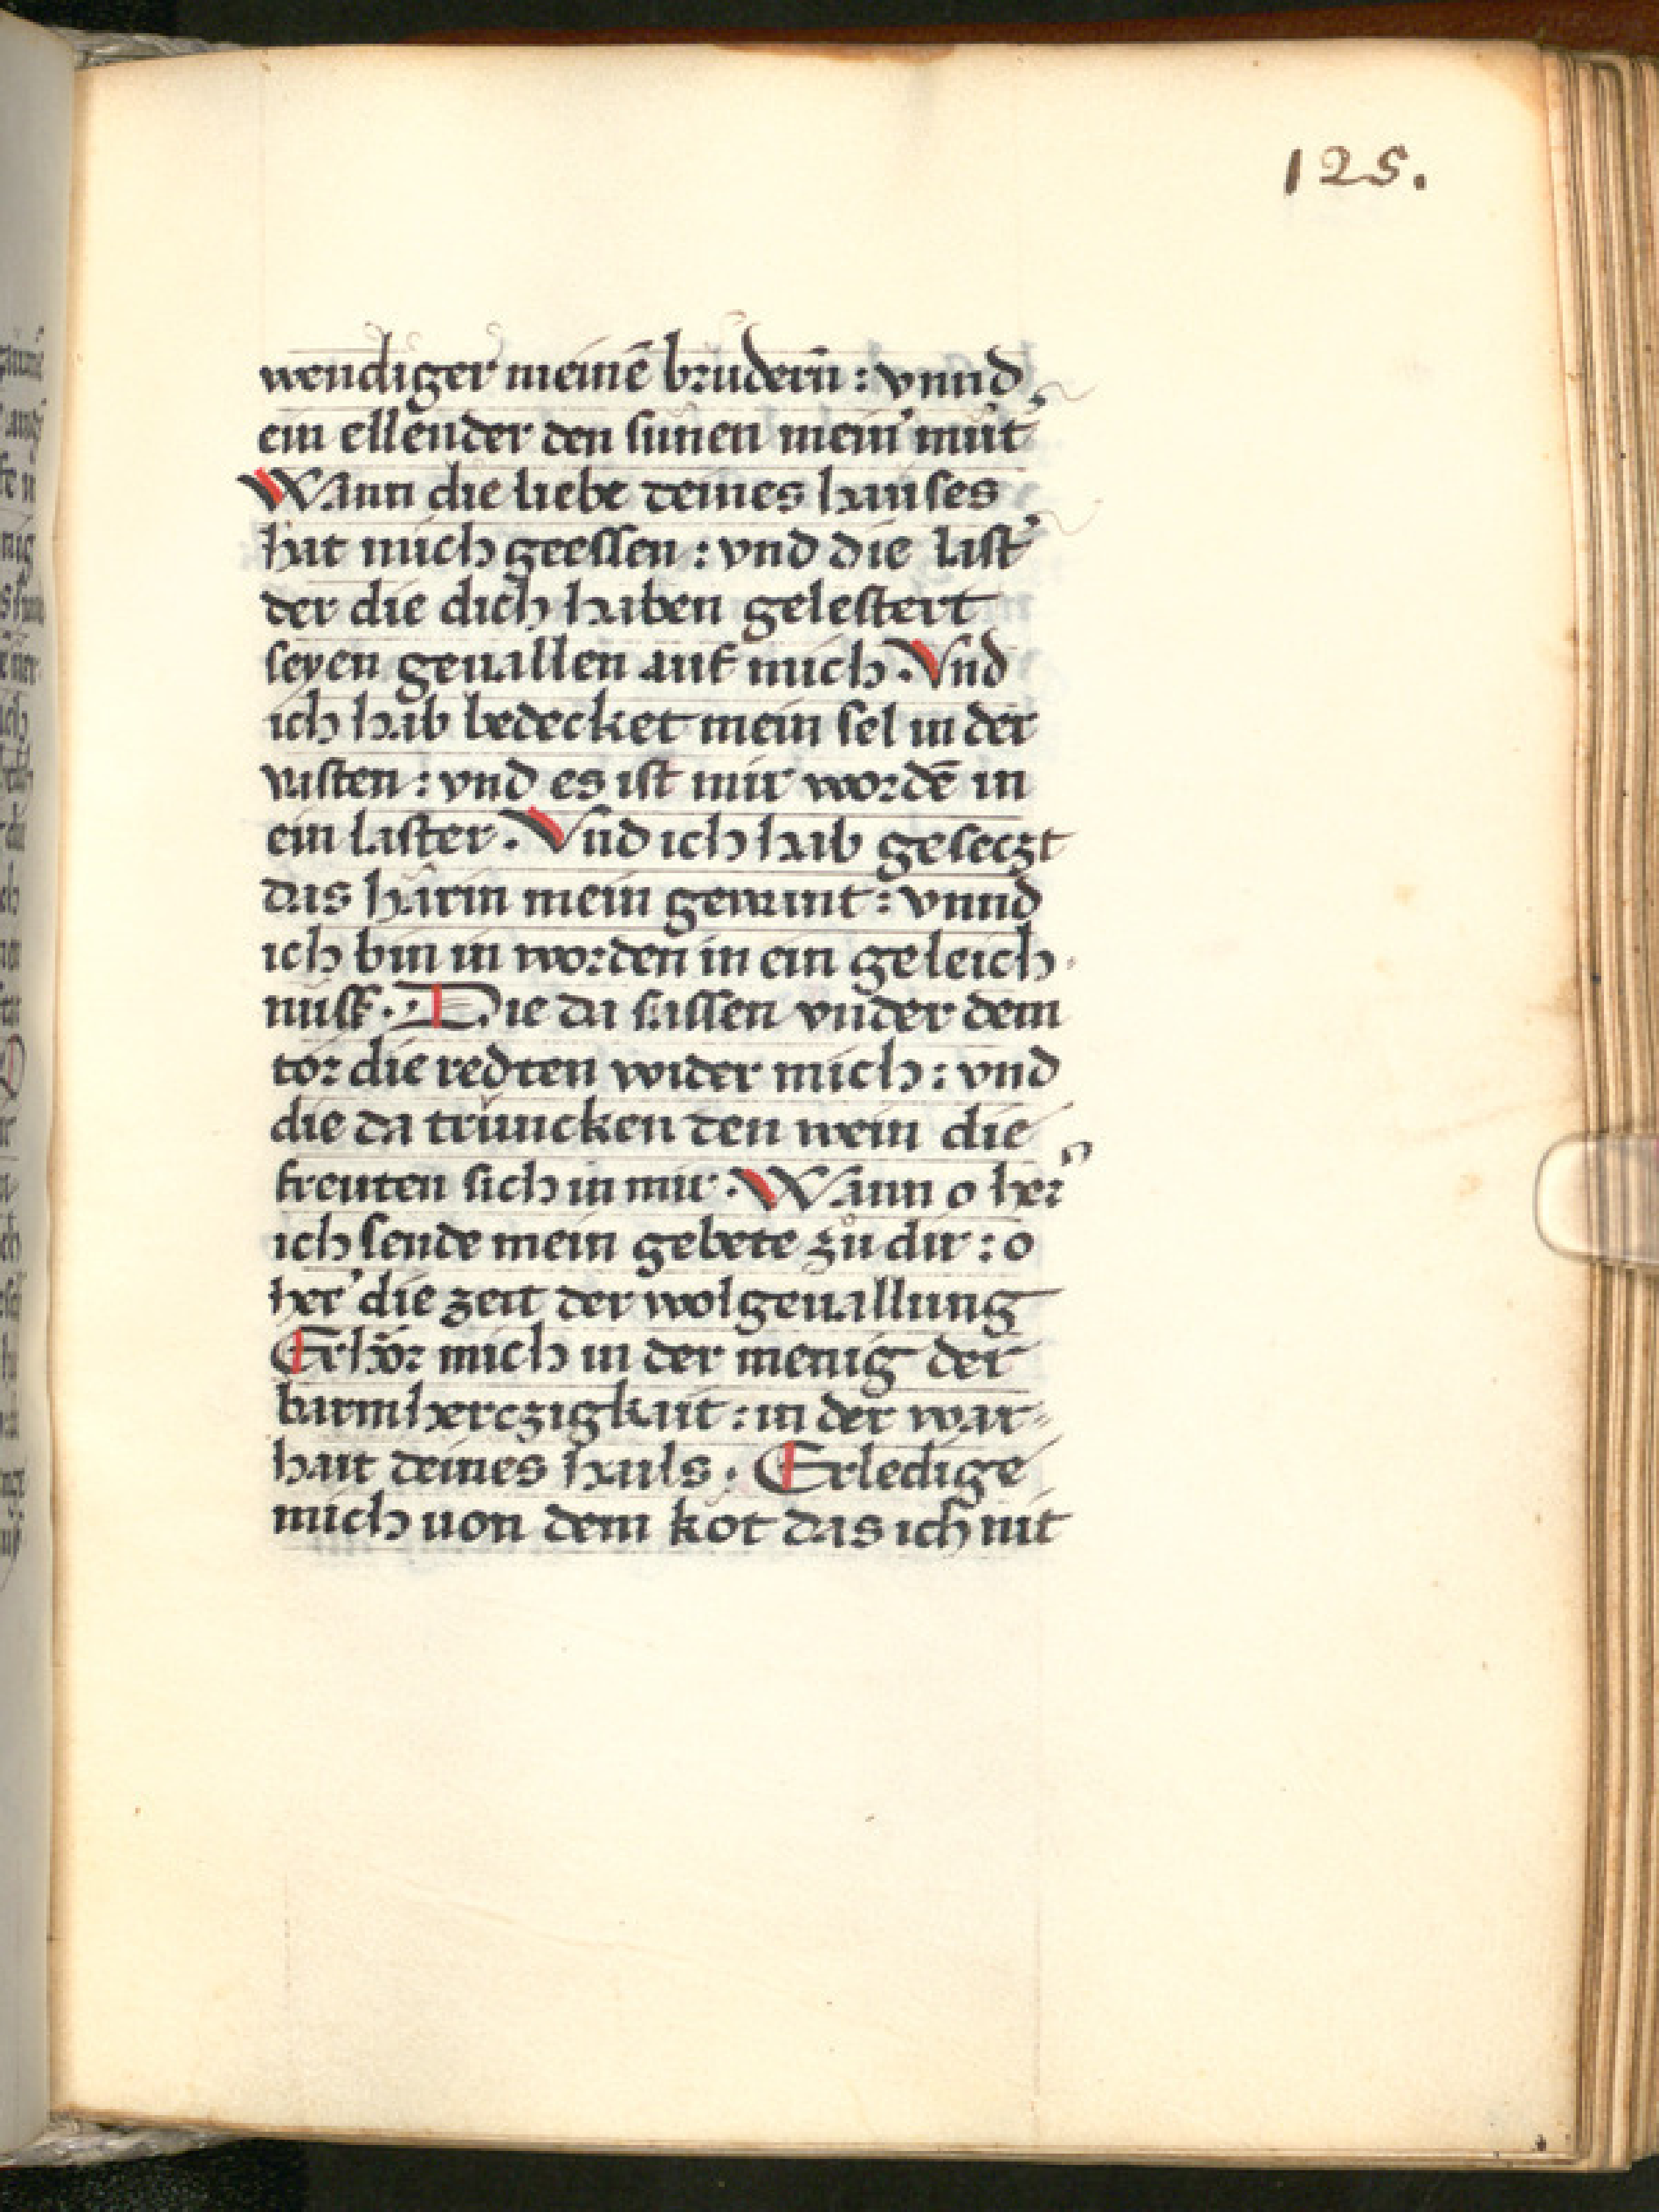 125.
wendiger meinē brudern : vnnd
ein ellender den sünen mein' mut'
Wann die liebe deines hauses
hat mich geessen : vnd die last'
der die dich haben gelestert
seyen geuallen auf mich. Vnd
ich hab bedecket mein sel in der
vasten : vnd es ist mir wordē in
ein laster. Vnd ich hab geseczt
das härin mein gewant : vnnd
ich bin in worden in ein geleich
nuss. Die da sassen vnder dem
tor die redten wider mich : vnd
die da truncken den wein die
freuten sich in mir. Wann o her'
ich sende mein gebete zů dir : o
her' die zeit der wolgeuallung
Erhör mich in der menig der
barmherczigkait : in der war=
hait deines hails. Erledige
mich uon dem kot das ich nit